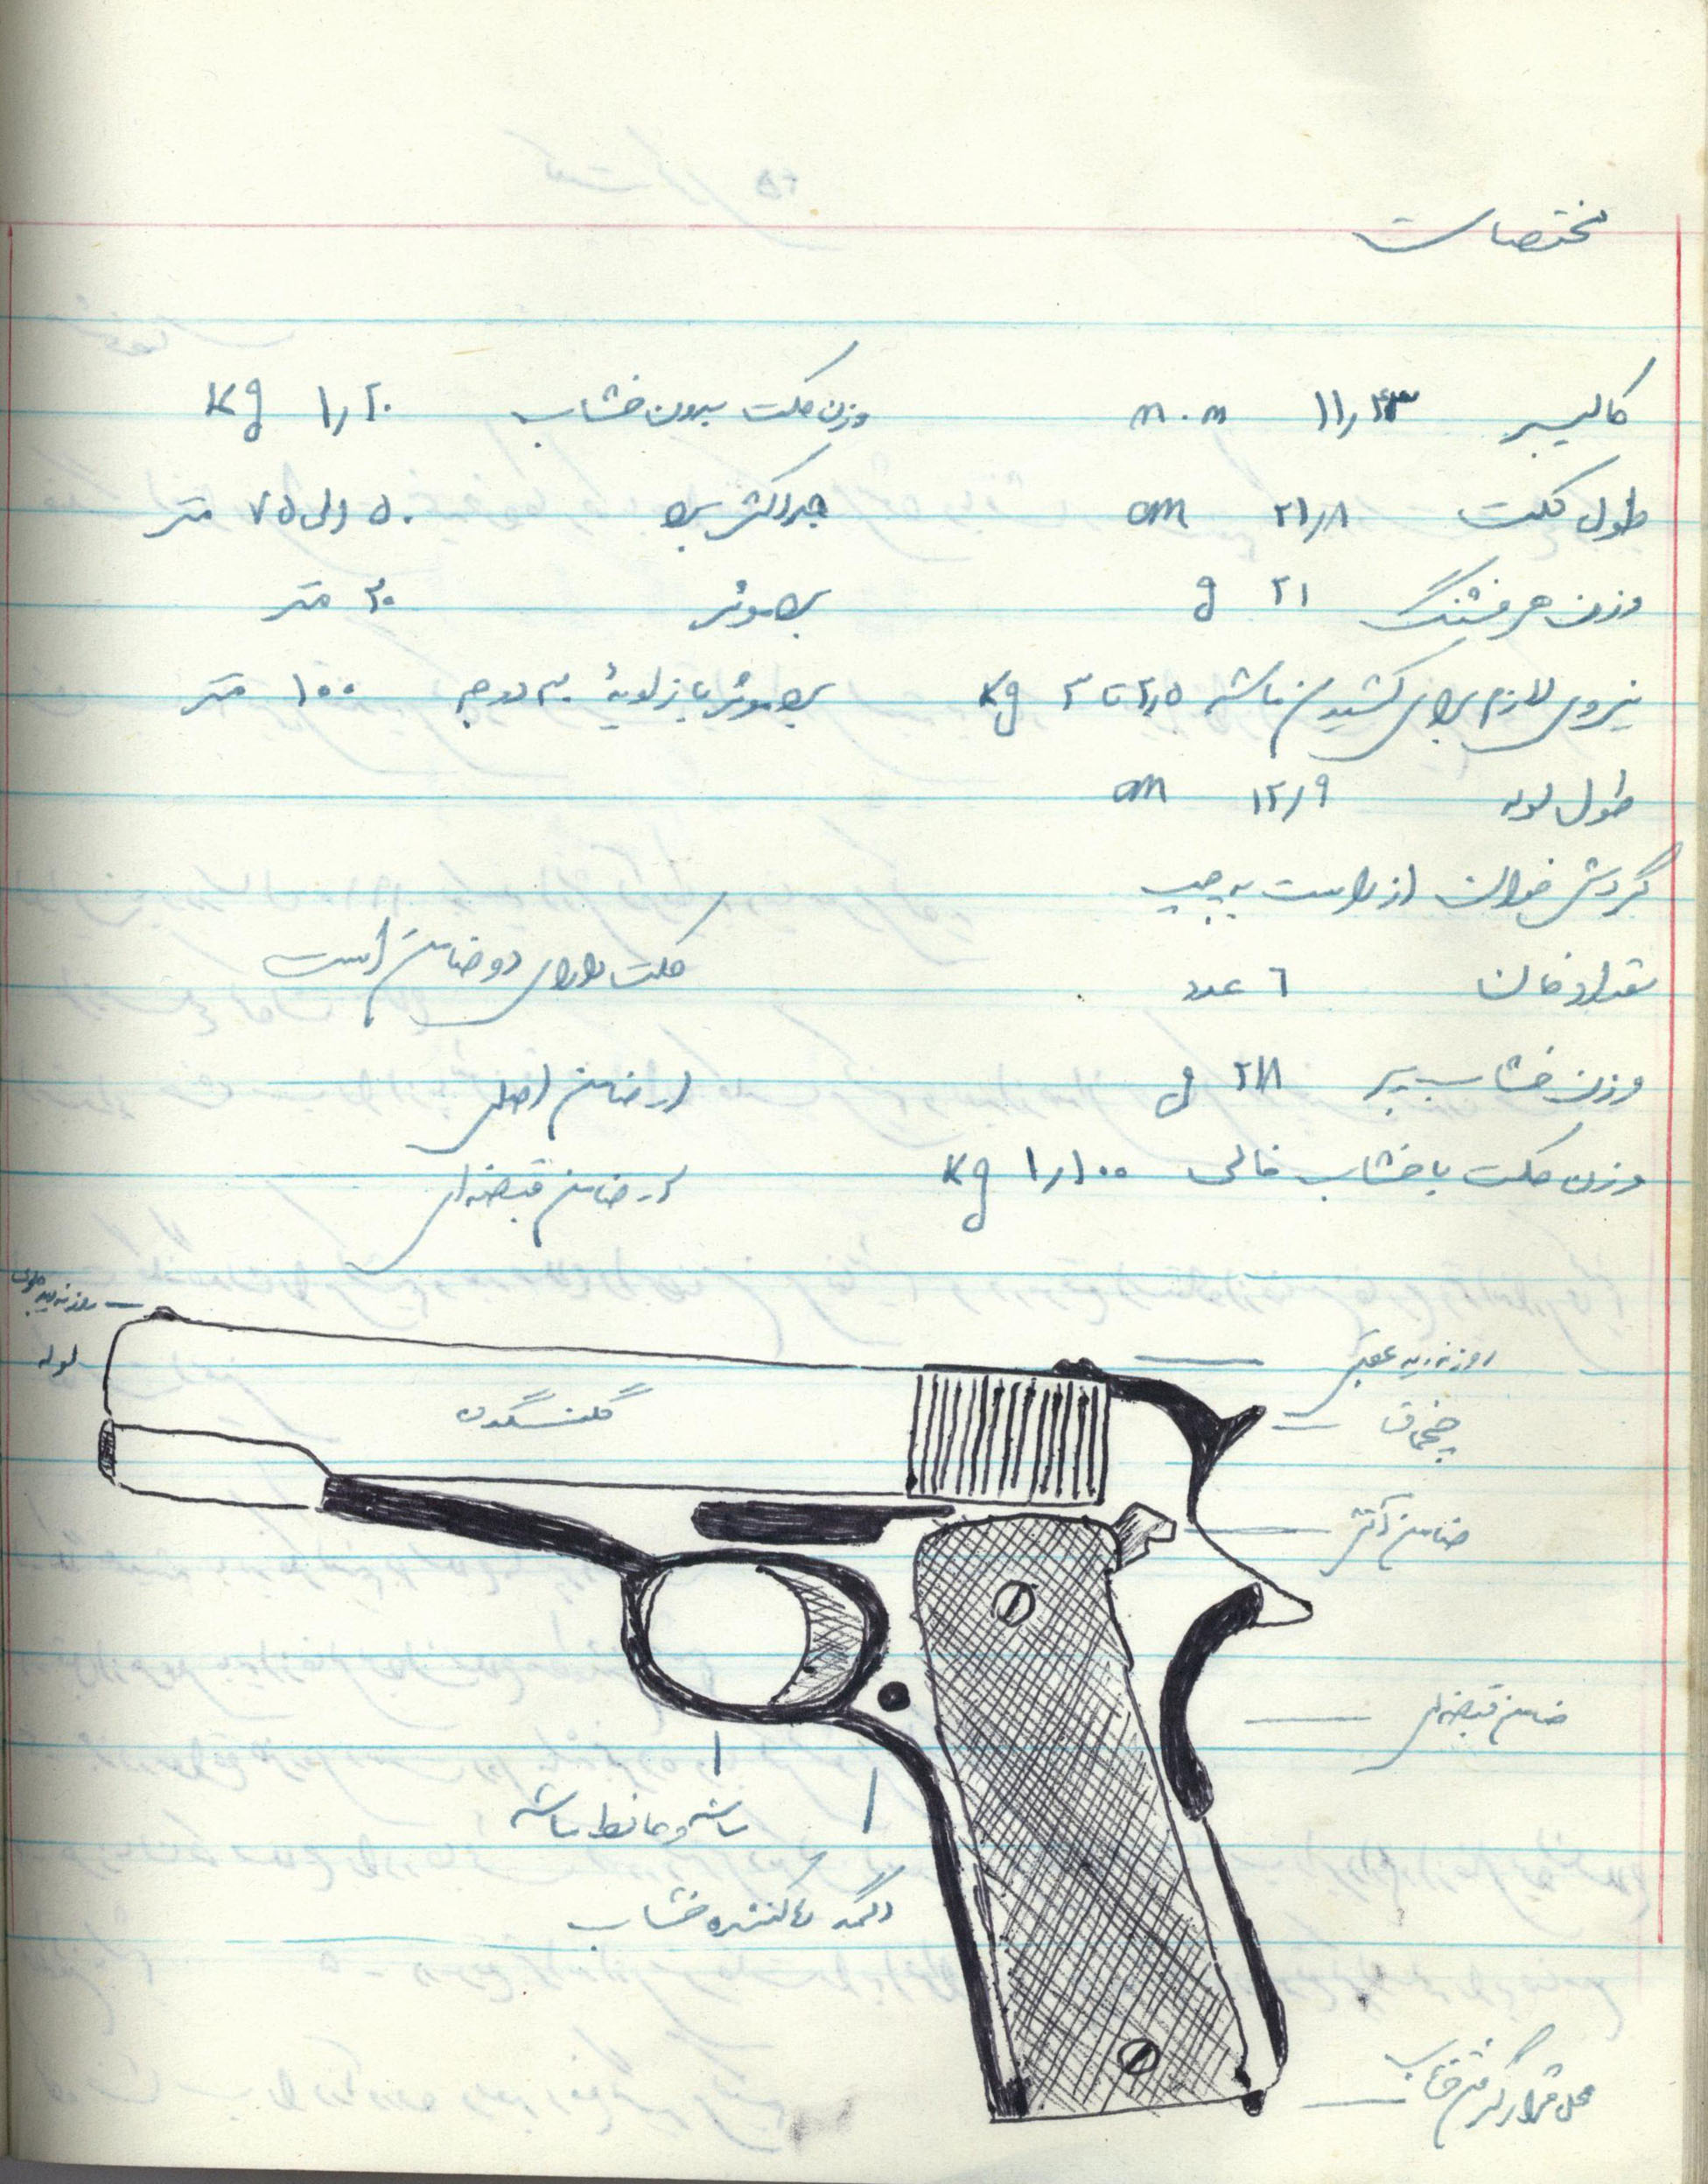 مختصات
کالیبر ۱۱٫۴۳ m.m وزن کلت بدون خشاب ۱٫۲۰ Kg
طول کلت ۲۱٫۸ cm حداکثر برد ۵۰ الی ۷۵ متر
وزن هر فشنگ ۲۱ g برد موثر ۳۰ متر
نیروی لازم برای کشیدن ماشه ۲٫۵ تا ۳ Kg برد موثر با زاویهٔ ۳۰ درجه ۱۰۰ متر
طول لوله ۱۲٫۹ cm
گردش خوان از راست به چپ
تعداد خان ۶ عدد کلت دارای دو ضامن است
وزن خشاب پر ۲۱۸ g ۱ـ ضامن اصلی
وزن کلت با خشاب خالی ۱٫۱۰۰ Kg ۲ـ ضامن قبضه‌ای
لوله
گلنگدن
روزنه دید عقب
چخماق
ضامن قبضه‌ای
ماشه و حافظ ماشه
دکمه رها کننده خشاب
محل قرار گرفتن خشاب